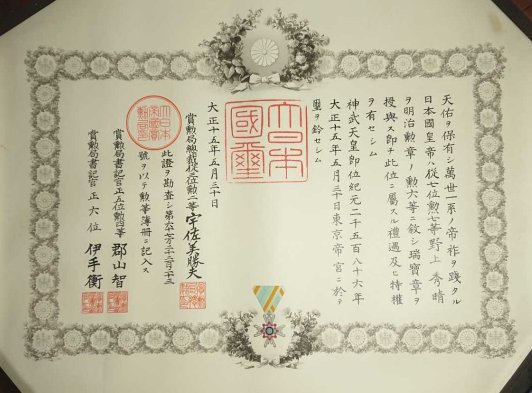 天佑ヲ保有シ萬世一系ノ帝祚ヲ踐タル
日本國皇帝ハ從七位勲七等野上秀晴
ヲ明治勲章ノ勲六等ニ敍シ瑞寶章ヲ
授與ス即チ此位ニ屬スル禮遇及ヒ特權
ヲ有セシム
神武天皇即位紀元二千五百八十六年
大正十五年五月三十日東京帝宮ニ於テ
璽ヲ鈐セシム
大日本
國璽
大正十五年五月三十日
賞勲局總裁從二位勲一等宇佐美勝夫
此證ヲ勘査シ第
號ヲ以テ勲等簿冊ニ記入ス
賞勲局書記官正五位勲四等 郡山智
賞勲局書記官正六位 伊手衡